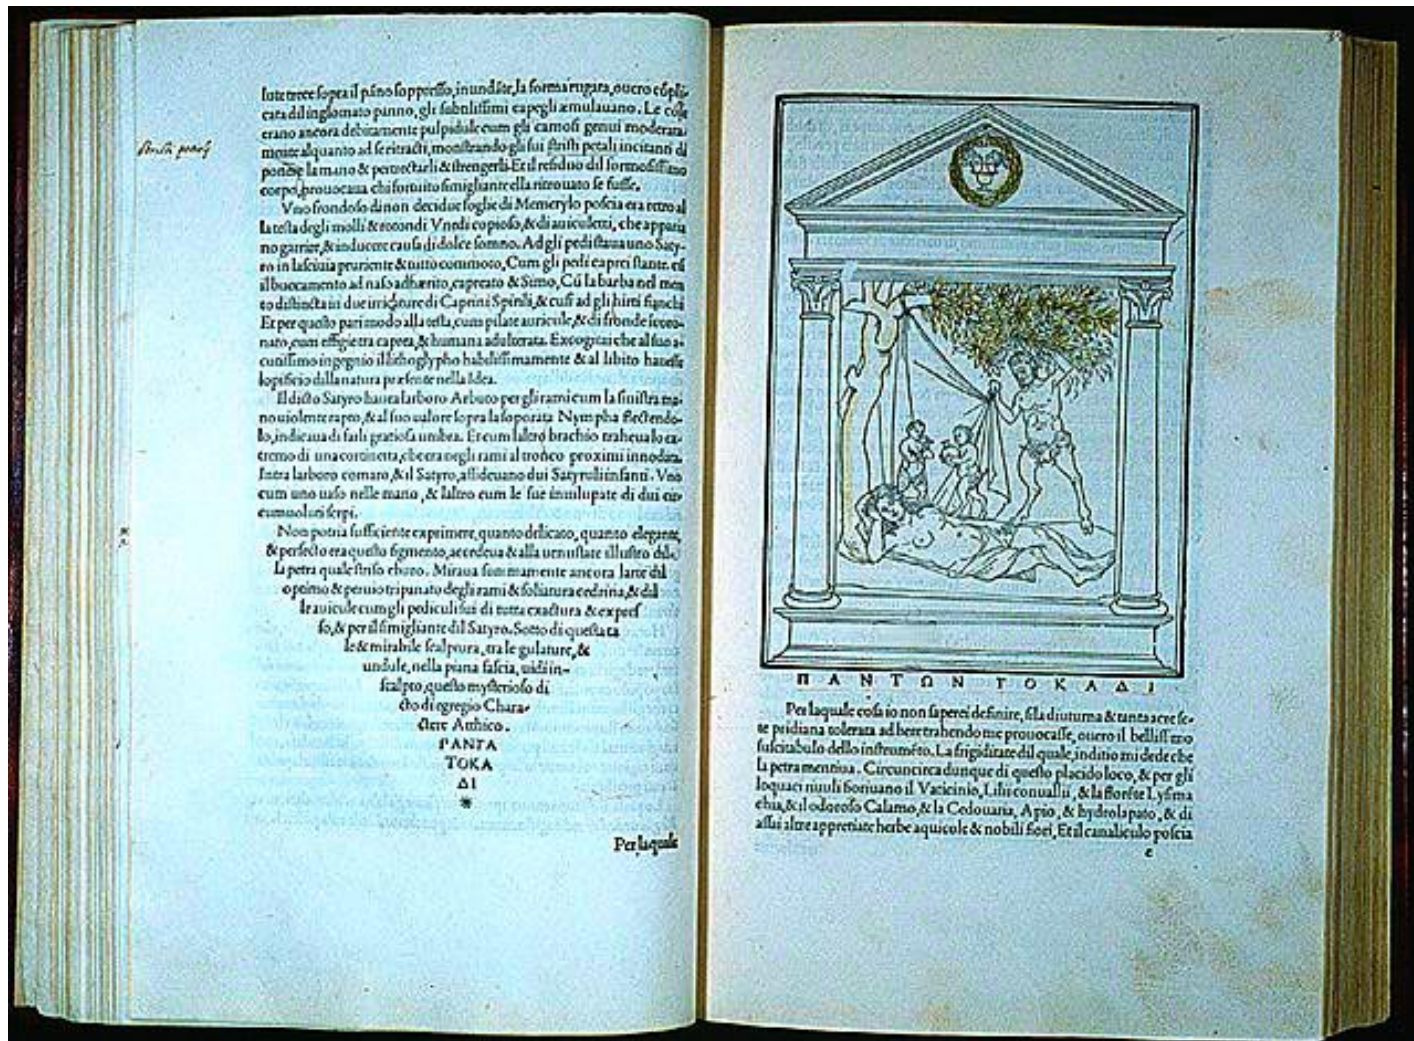 lute trece sopra il pāno soppresso, inundāte, la forma rugata, ouero cōpli-
cata dil ingssomato panno, gli subtilissimi capegli æmulauano. Le cosse
erano ancora debitamente pulpidule cum gli carnosi genui modera ta-
mente alquanto ad se ritracti, monstrando gli sui stristi petali incitanti di
ponere la mano & pertrectarli & strengerli. Et il residuo dil formosissimo
corpo, prouocaua chi fortuito simigliante ella ritrouato se fusse.
Vno frondoso di non decidue foglie di Memerylo poscia era retro al
la testa degli molli & rotondi Vnedi copioso, & di auiculetti, che apparia
no garrire, & inducere causa di dolce somno. Ad gli pedi staua uno Saty-
ro in lasciuia pruriente & tutto commoto, Cum gli pedi caprei stante. cū
il buccamento ad naso adhærito, capreato & Simo, Cū la barba nel men
to distincta in due irriciature di Caprini Spirili, & cusi ad gli hirti fianchi
Et per questo pari modo alla testa, cum pilate auricule, & di fronde incoro-
nato, cum effigie tra caprea, & humana adulterata. Excogitai che al suo a-
cutissimo ingegnio il lithoglypho habilissimamente & al libito hauesse
lopificio dilla natura præsente nella Idea.
El dicto Satyro hauea larboro Arbuto per gli rami cum la sinistra ma-
no uiolente rapto, & al suo ualore sopra la soporata Nympha flectendo-
lo, indicaua di farli gratiosa umbra. Et cum laltro brachio traheua lo ex-
tremo di una cortinetta, che era negli rami al tronco proximi innodata.
Intra larboro comaro, & il Satyro, assideuano dui Satyruli infanti. Vno
cum uno uaso nelle mano, & laltro cum le sue inuilupate di dui cir-
cumuoluti serpi.
Non potria sufficiente exprimere, quanto delicato, quanto elegante,
& perfecto era questo figmento, accedeua & alla uenustate illustro dila
la petra quale striso eburo. Miraua summamente ancora larte dil
optimo & peruio tripanato degli rami & foliatura cedrina, & dil
le auicule cum gli pediculi sui di tutta exactura & expres
so, & per il simigliante dil Satyro. Sotto di questa ta
le & mirabile scalptura, tra le gulature, &
undule, nella piana fascia, uidi in-
scalpto, questo mysterioso di
cto di egregio Chara-
ctere Atthico.
PANTA
TOKA
ΔI
Per laquale
ΠΑΝΤΩΝ ΤΟΚΑΔΙ
Per laquale cosa io non saperei definire, si la diuturna & tanta acre se-
te pridiana tolerata ad bere trahendo me prouocasse, ouero il bellissimo
suscitabulo dello instruméto. La frigiditate dil quale, inditio mi dede che
la petra mentiua. Circuncirca dunque di questo placido loco, & per gli
loquaci riuuli fioriuano il Vaticinio, Lilii conuallii, & la florēte Lysima
chia, & il odoroso Calamo, & la Cedouaria, Apio, & hydrolapato, & di
assai altre appretiate herbe aquicole & nobili fiori, Et il canaliculo poscia
e